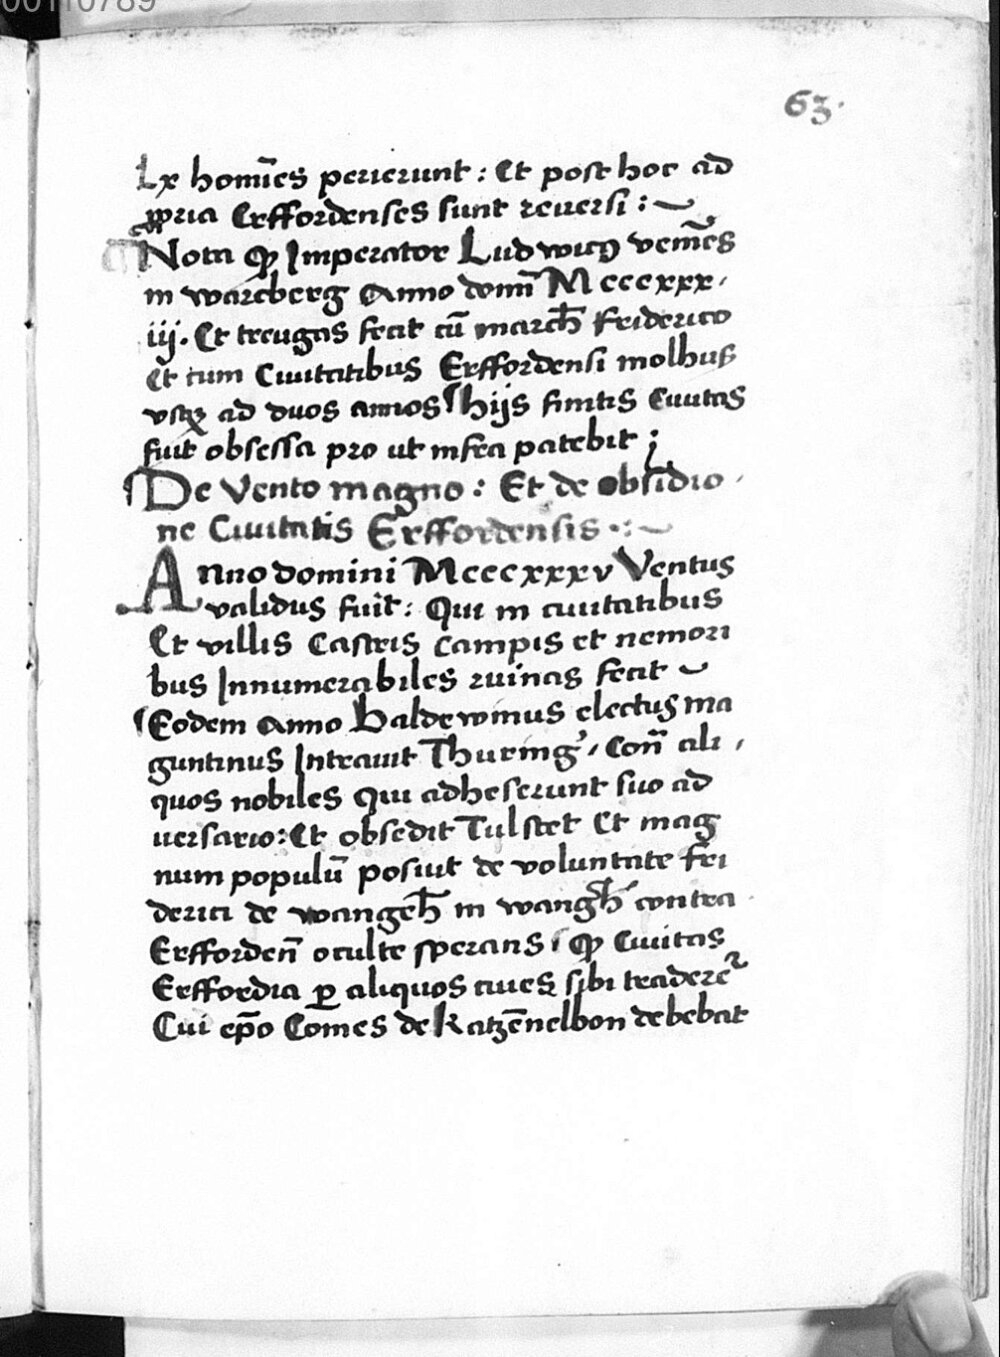 00110789
63.
Lx homīes perierunt : Et post hoc ad
ꝓpria Erffordenses sunt reuersi :~
Nota ꝙ Imperator Ludwicꝯ veniēs
in wartberg Anno domī Mcccxxx
iij. Et treugas fecit cū march̄ Friderico
Et cum Ciuitatibus Erffordensi molhuß
vsqꝫ ad duos annos hijs finitis Ciuitas
fuit obsessa pro ut infra patebit ;
De Vento magno : Et de obsidio
ne Ciuitatis Erffordensis ·:~
Anno domini Mcccxxxv Ventus
validus fuit : Qui in ciuitatibus
Et villis Castris campis et nemori
bus Innumerabiles ruinas fecit ~
Eodem Anno Baldewinus electus ma
guntinus Intrauit Thuring̛ Con̄ ali
quos nobiles Qui adheserunt suo ad
uersario : Et obsedit Tulstet Et mag
num populū posuit de voluntate fri
derici de wangeh̄ in wangh̄ contra
Erfforden̄ oculte sperans ꝙ Ciuitas
Erffordia ꝑ aliquos ciues sibi traderet̛
Cui ep̄o Comes de Katzēnelbon debebat